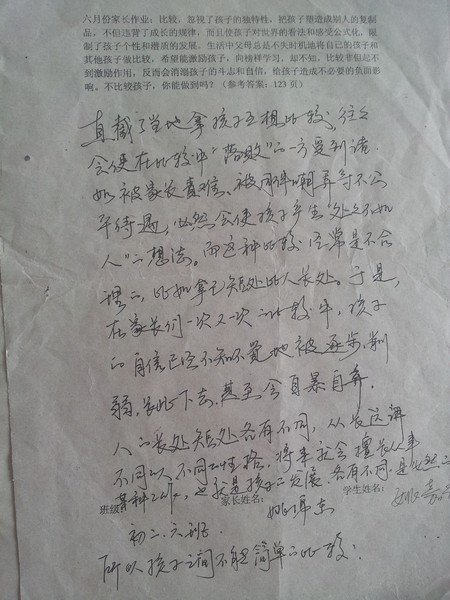 六月份家长作业：比较，忽视了孩子的独特性，把孩子塑造成别人的复制
品，不但违背了成长的规律，而且使孩子对世界的看法和感受公式化，限
制了孩子个性和潜质的发展。生活中父母总是不失时机地将自己的孩子和
其他孩子做比较，希望能激励孩子，向榜样学习，却不知，比较非但起不
到激励作用，反而会消弱孩子的斗志和自信，给孩子造成不必要的负面影
响，不比较孩子，你能做到吗？（参考答案：123 页）
直截了当地拿孩子互相比较，往往
会使在比较中“落败”的一方受到诸
如被家长责难、被同伴嘲弄等不公
平待遇，必然会使孩子产生“处处不如
人”的想法，而这种比较经常是不合
理的，比如拿己短处比人长处。于是，
在家长们一次又一次的比较中，孩子
的自信已经不知不觉地被逐步削
弱，长此下去，甚至会自暴自弃，
人的长处短处各有不同，从长远讲
不同的人不同的性格，将来就会擅长从事
某种工作，也就是孩子的发展各有不同，是必然的
班级 家长姓名： 学生姓名：
初二.六班
所以孩子之间不能简单的比较！